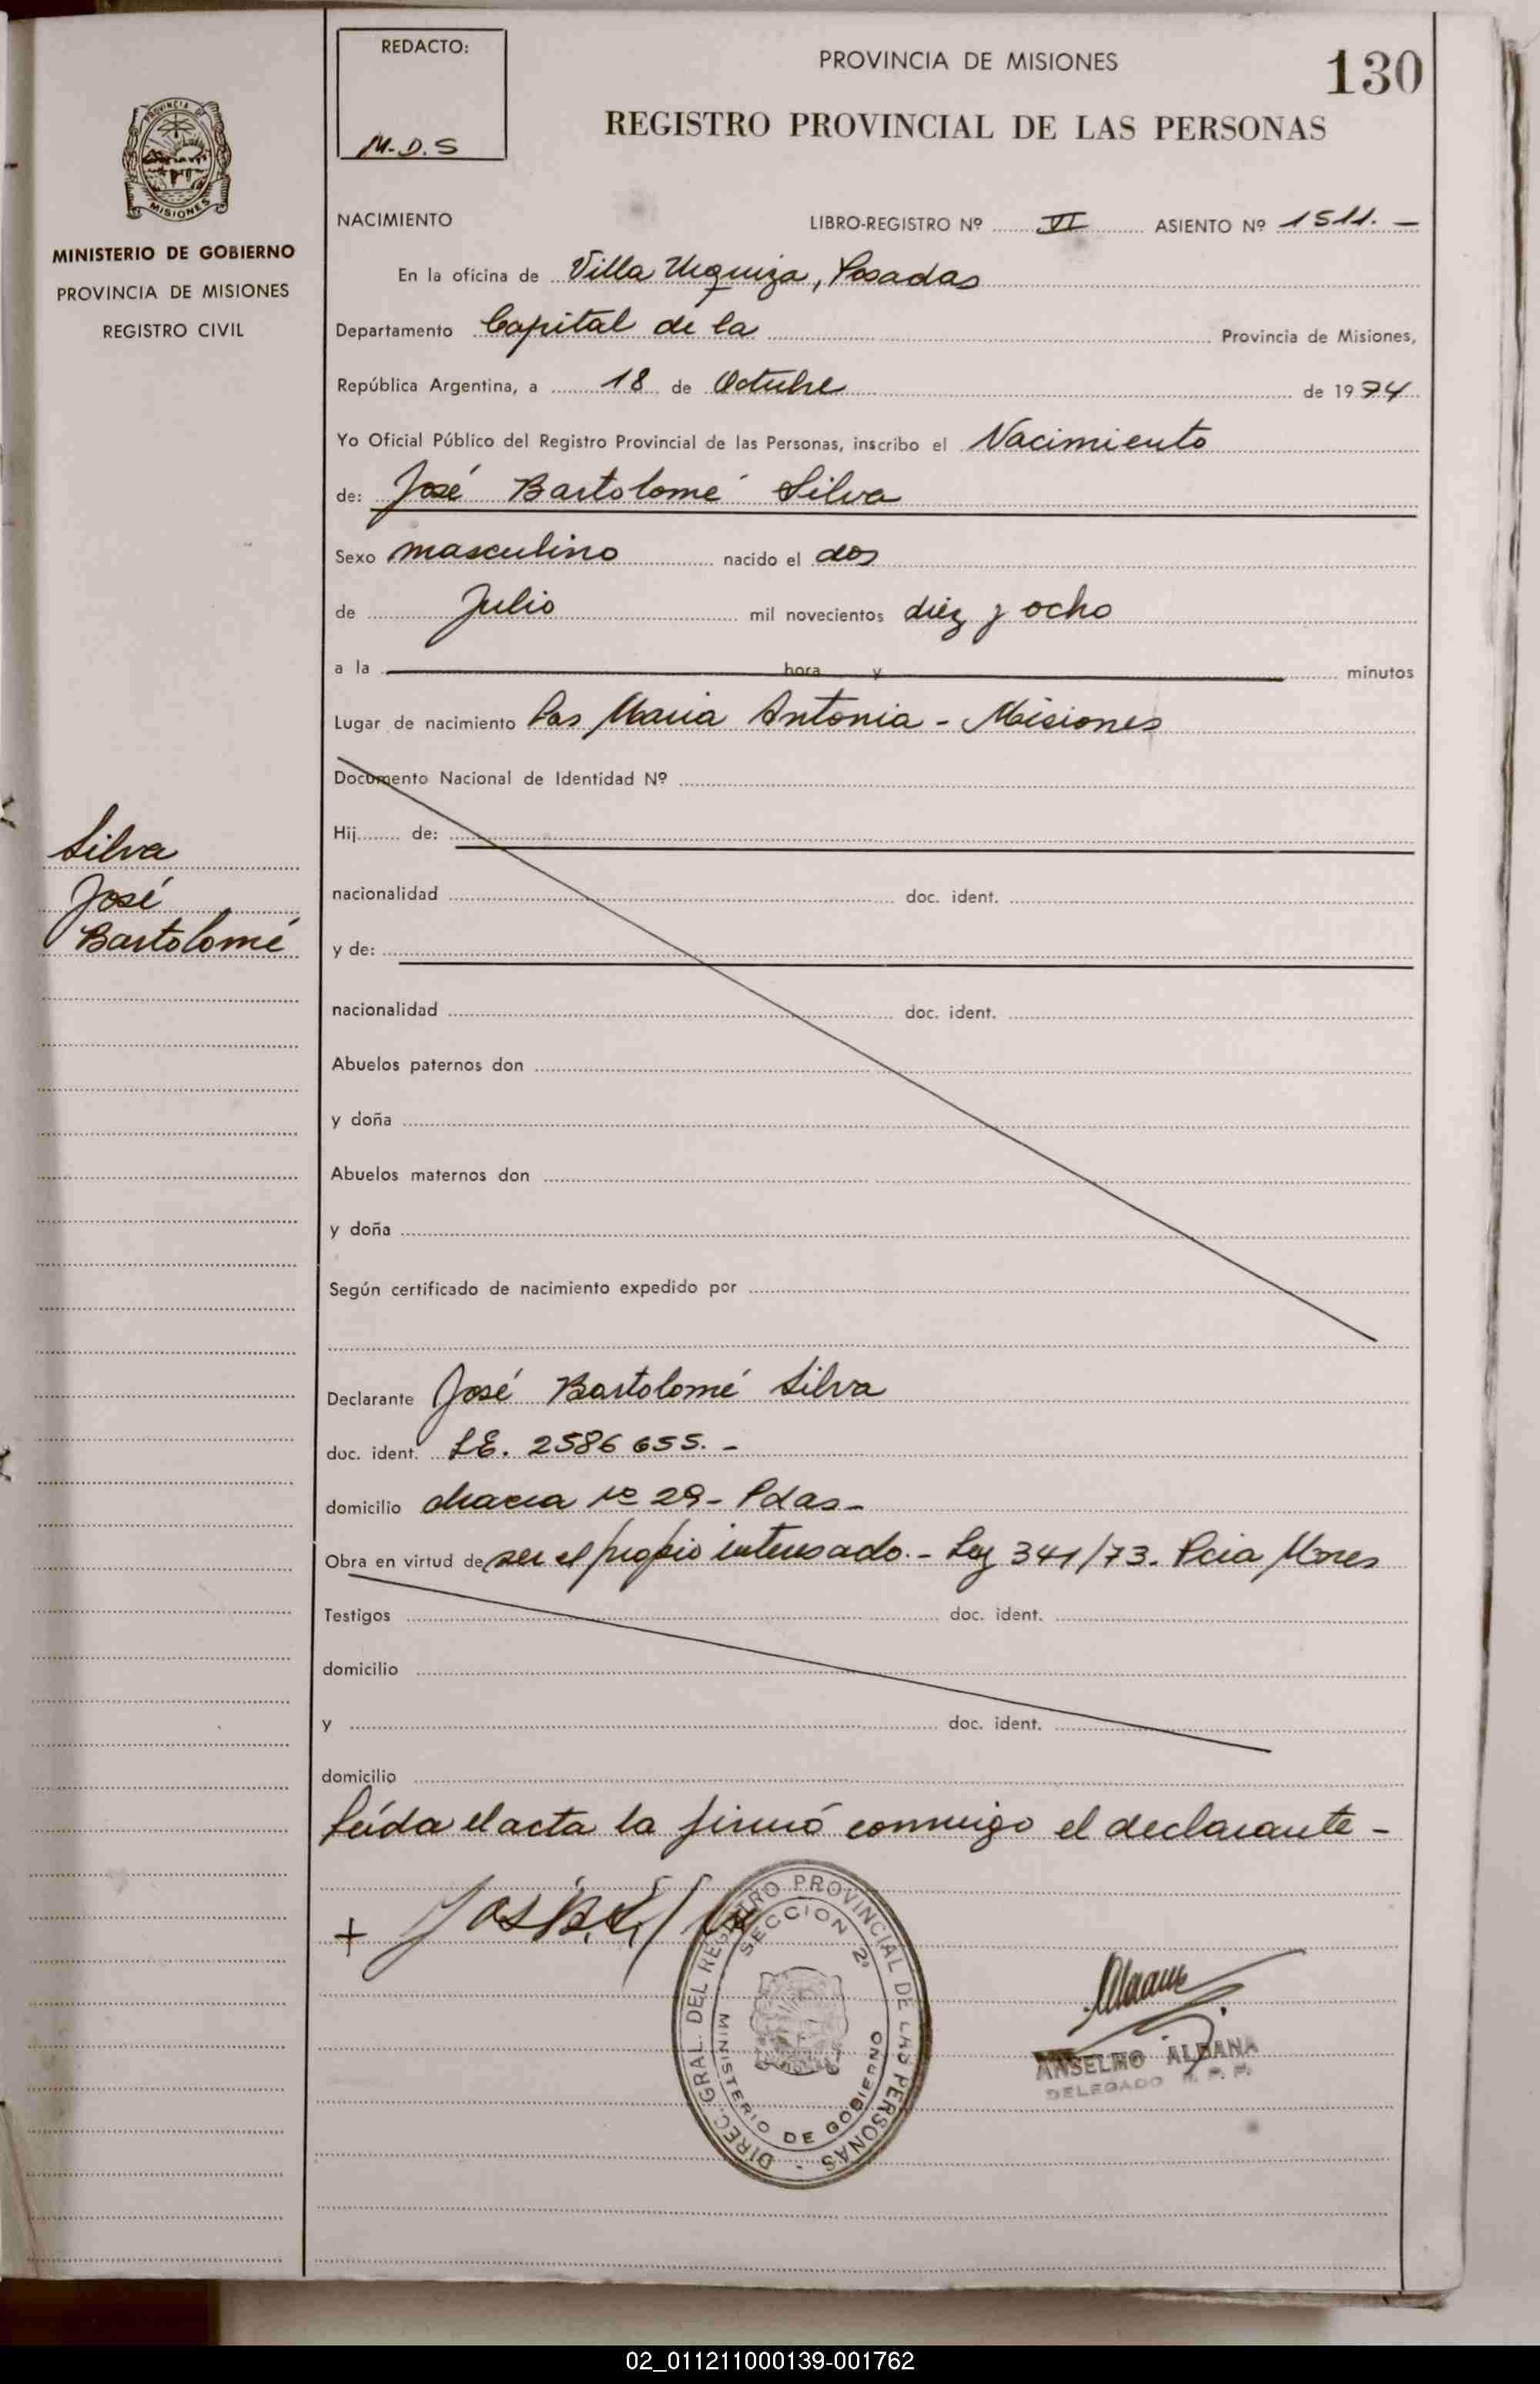 REDACTO:
M.D.S
PROVINCIA DE MISIONES
130
REGISTRO PROVINCIAL DE LAS PERSONAS
PROVINCIA DE
MISIONES
MINISTERIO DE GOBIERNO
PROVINCIA DE MISIONES
REGISTRO CIVIL
NACIMIENTO LIBRO-REGISTRO Nº VI ASIENTO Nº 1511. —
En la oficina de Villa Urquiza, Posadas
Departamento Capital de la Provincia de Misiones,
República Argentina, a 18 de Octubre de 1974
Yo Oficial Público del Registro Provincial de las Personas, inscribo el Nacimiento
de: José Bartolomé Silva
Sexo masculino nacido el dos
de Julio mil novecientos diez y ocho
a la hora y minutos
Lugar de nacimiento Pas Maria Antonia - Misiones
Documento Nacional de Identidad Nº
Hij de:
nacionalidad doc. ident.
y de:
nacionalidad doc. ident.
Abuelos paternos don
y doña
Abuelos maternos don
y doña
Según certificado de nacimiento expedido por
Silva
José
Bartolomé
Declarante José Bartolomé Silva
doc. ident. L.E. 2586655. -
domicilio chacra nº 29 - Pdas -
Obra en virtud de ser el propio interesado. - Ley 341/73. Pcia Mnes
Testigos doc. ident.
domicilio
y doc. ident.
domicilio
Leída el acta la firmó conmigo el declarante -
DIREC. GRAL. DEL REGISTRO PROVINCIAL DE LAS PERSONAS -
SECCION 2ª
MINISTERIO DE GOBIERNO
ANSELMO ALDANA
DELEGADO R. P. P.
02_011211000139-001762